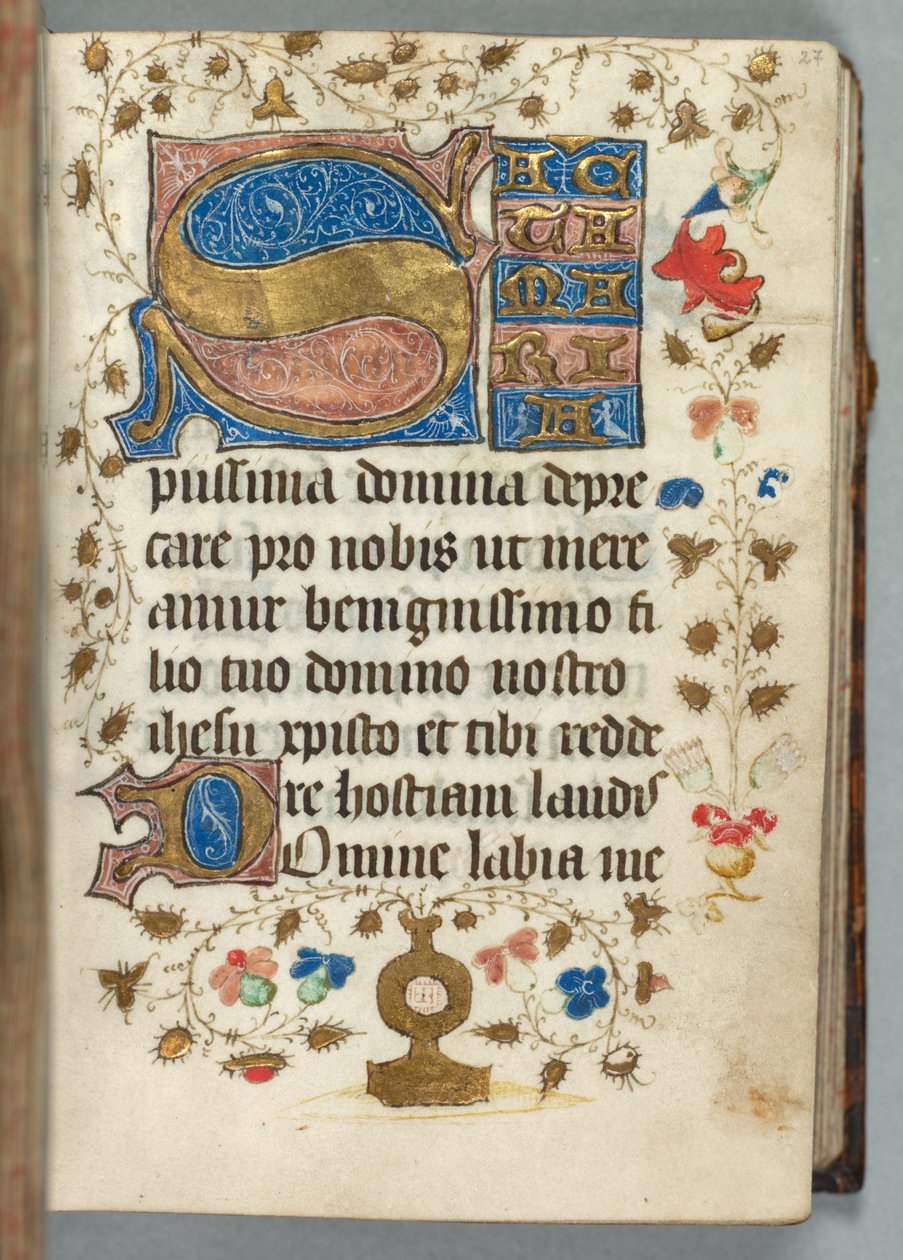 27
SAC
TA
MA
RI
A
piissima domina depre
care pro nobis ut mere
amur benignissimo fi
lio tuo domino nostro
ihesu xpisto et tibi redde
re hostiam laudis
DOmine labia me